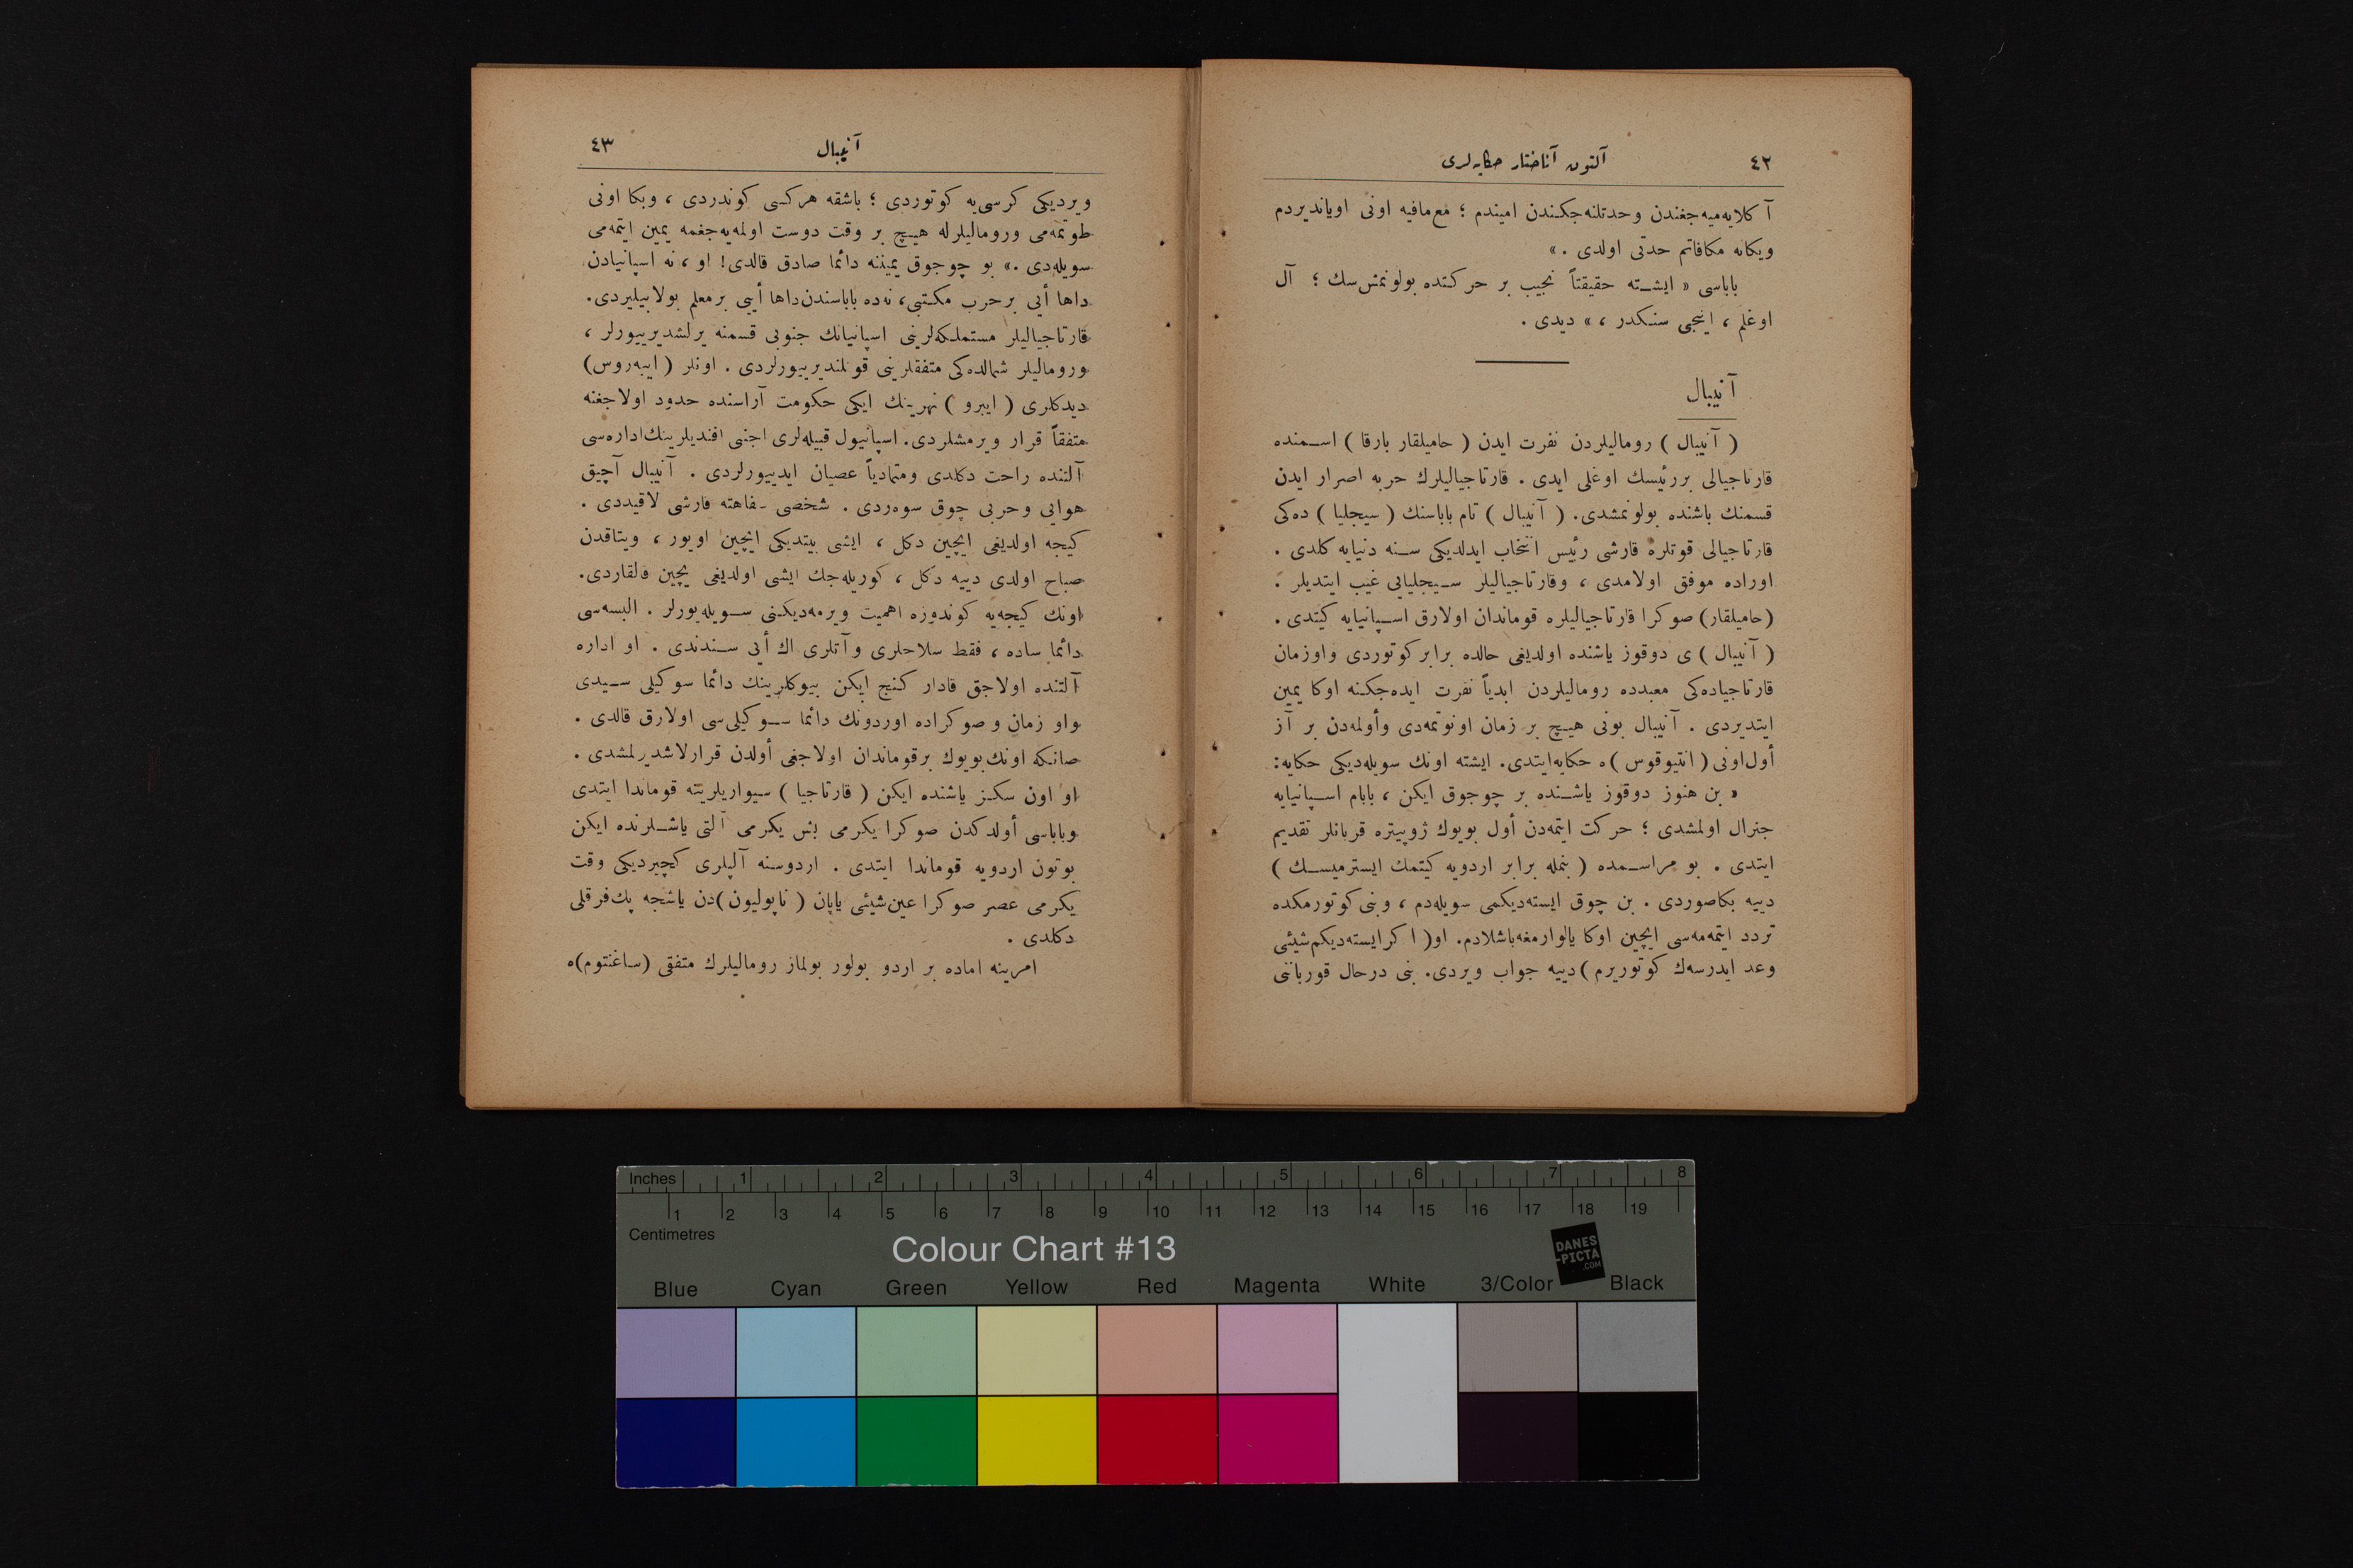 ٤٢
آلتون آناختار حكايه‌لری
آ كلايه‌ميه‌جغندن وحدتلنه‌جكندن امیندم ؛ مع‌مافيه اونی اوياندیردم
وبكانه مكافاتم حدتی اولدی . »
باباسی « ايشته حقيقتاً نجيب بر حركتده بولونمش‌سك ؛ آل
اوغلم ، اينجی سنكدر ، » ديدی .
آنيبال
( آنيبال ) روماليلردن نفرت ايدن ( حاميلقار بارقا ) اسمنده
قارتاجيالی بررئيسك اوغلی ايدی . قارتاجياليلرك حربه اصرار ايدن
قسمنك باشنده بولونمشدی. ( آنيبال ) تام باباسنك ( سيجليا ) ده‌كی
قارتاجيالی قوتلره قارشی رئيس انتخاب ايدلديكی سنه دنيايه كلدی .
اوراده موفق اولامدی ، وقارتاجياليلر سيجليايی غيب ايتديلر .
(حاميلقار) صوكرا قارتاجياليلره قوماندان اولارق اسپانيايه كيتدی .
( آنيبال ) ی دوقوز ياشنده اولديغی حالده برابر كوتوردی واوزمان
قارتاجياده‌كی معبدده روماليلردن ابدياً نفرت ايده‌جكنه اوكا يمين
ايتديردی . آنيبال بونی هيچ بر زمان اونوتمه‌دی وأولمه‌دن بر آز
أول‌اونی ( انتيوقوس ) ه حكايه‌ايتدی. ايشته اونك سويله‌ديكی حكايه:
« بن هنوز دوقوز ياشنده بر چوجوق ايكن ، بابام اسپانيايه
جنرال اولمشدی ؛ حركت ايتمه‌دن أول بويوك ژوپيتره قربانلر تقديم
ايتدی . بو مراسمده ( بنمله برابر اردويه كيتمك ايسترميسك )
دييه بكاصوردی . بن چوق ايسته‌ديكمی سويله‌دم ، وبنی كوتورمكده
تردد ايتمه‌مه‌سی ايچين اوكا يالوارمغه‌باشلادم. او( ا كرايسته‌ديكم‌شيئی
وعد ايدرسه‌ك كوتوريرم ) دييه جواب ويردی. بنی درحال قوربانی
آنيبال
٤٣
ويرديكی كرسی‌يه كوتوردی ؛ باشقه هركسی كوندردی ، وبكا اونی
طوتمه‌می وروماليلرله هيچ بر وقت دوست اولمه‌يه‌جغمه يمين ايتمه‌می
سويله‌دی .» بو چوجوق يميننه دائما صادق قالدی! او ، نه اسپانيادن
داها أيی برحرب مكتبی، نه‌ده باباسندن‌داها أيی برمعلم بولابيليردی.
قارتاجياليلر مستملكه‌لرينی اسپانيانك جنوبی قسمنه يرلشديرييورلر ،
وروماليلر شمالده‌كی متفقلرينی قوتلنديرييورلردی . اونلر ( ايبه‌روس)
ديدكلری ( ايبرو ) نهرينك ايكی حكومت آراسنده حدود اولاجغنه
متفقاً قرار ويرمشلردی. اسپانيول قبيله‌لری اجنبی افنديلرينك‌اداره‌سی
آلتنده راحت دكلدی ومتمادياً عصيان ايدييورلردی . آنيبال آچيق
هوايی وحربی چوق سوه‌ردی . شخصی سفاهته قارشی لاقيددی .
كيجه اولديغی ايچين دكل ، ايشی بيتديكی ايچين اويور ، ويتاقدن
صباح اولدی دييه دكل ، كوريله‌جك ايشی اولديغی يچين قالقاردی.
اونك كيجه‌يه كوندوزه اهميت ويرمه‌ديكنی سويله‌يورلر . البسه‌سی
دائما ساده ، فقط سلاحلری وآتلری اك أيی سندندی . او اداره
آلتنده اولاجق قادار كنج ايكن بيوكلرينك دائما سوكيلی سيدی
واو زمان و صوكراده اوردونك دائما سوكيلی‌سی اولارق قالدی .
صانكه اونك‌بويوك برقوماندان اولاجغی أولدن قرارلاشديرلمشدی .
او اون سكز ياشنده ايكن ( قارتاجيا ) سيواريلرينه قوماندا ايتدی
وباباسی أولدكدن صوكرا يكرمی بش يكرمی آلتی ياشلرنده ايكن
بوتون اردويه قوماندا ايتدی . اردوسنه آلپلری كچيرديكی وقت
يكرمی عصر صوكرا عين‌شيئی ياپان ( ناپوليون)دن ياشجه پك‌فرقلی
دكلدی .
امرينه اماده بر اردو بولور بولماز روماليلرك متفقی (ساغنتوم)ه
Inches 1 2 3 4 5 6 7 8
1 2 3 4 5 6 7 8 9 10 11 12 13 14 15 16 17 18 19
Centimetres
Colour Chart #13
DANES
-PICTA
.COM
Blue Cyan Green Yellow Red Magenta White 3/Color Black